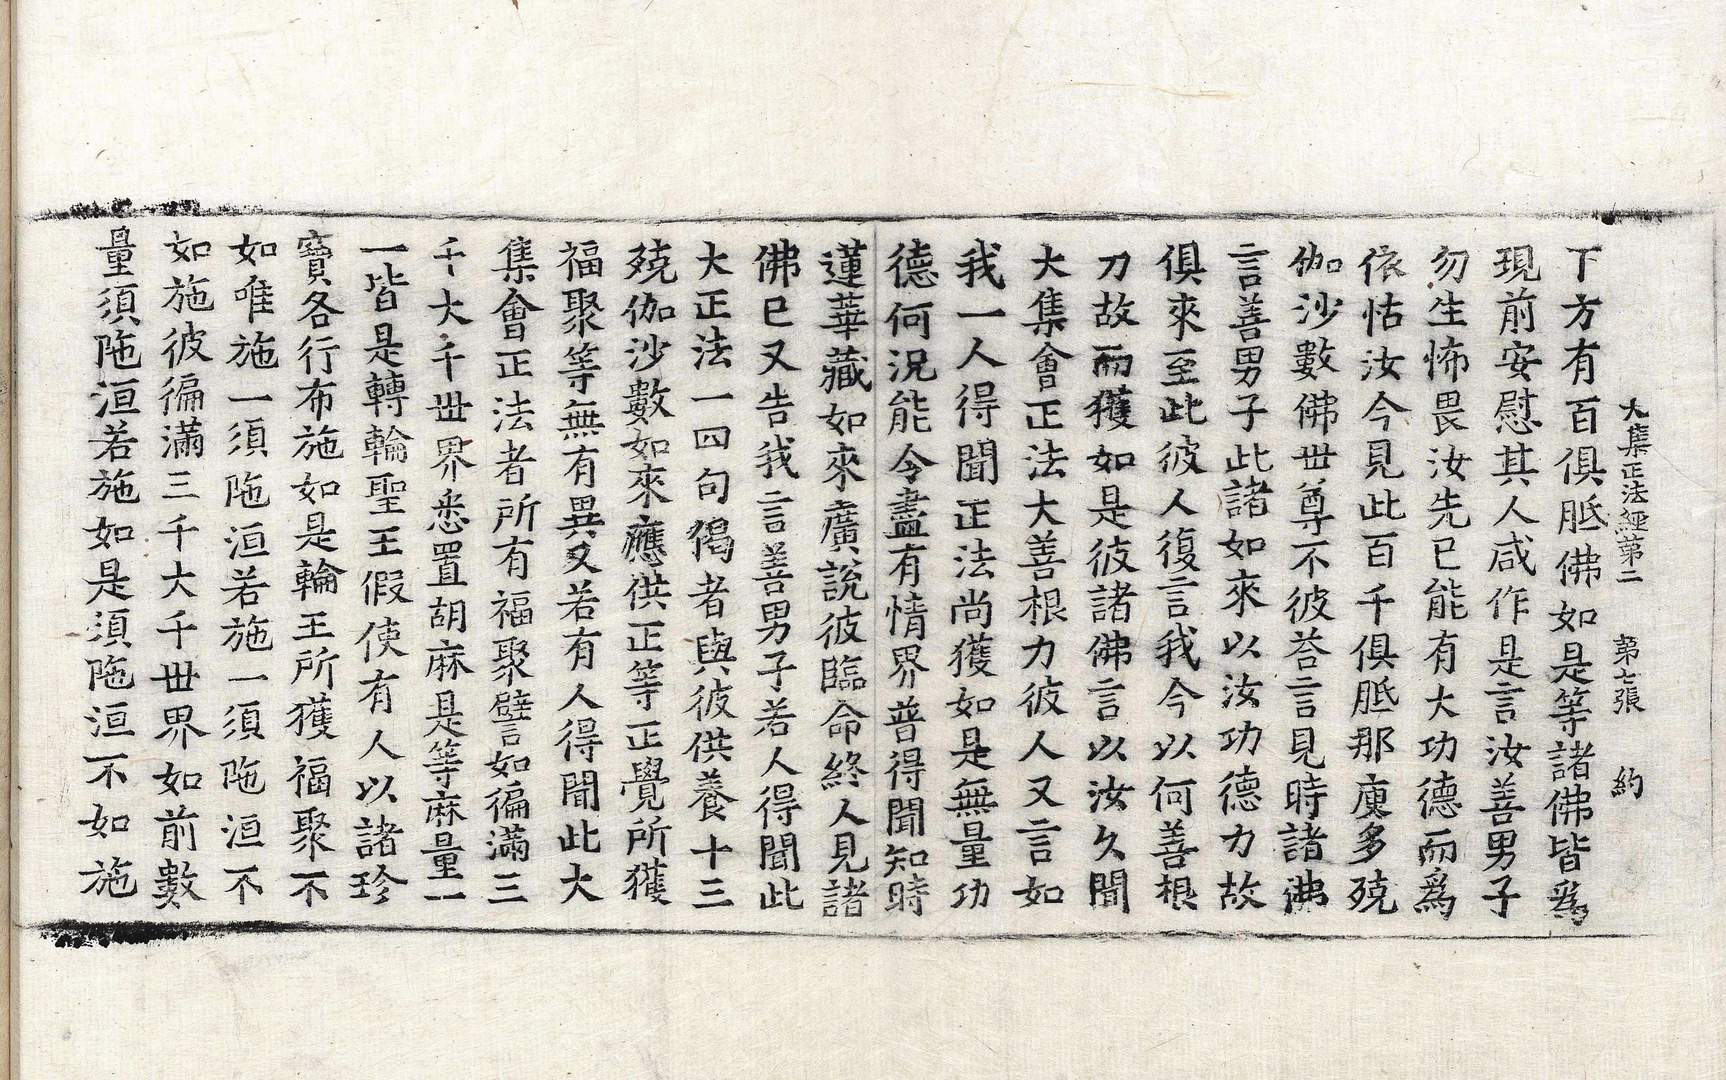 大集正法經第二 第七張 約
下方有百俱胝佛如是等諸佛皆爲
現前安慰其人咸作是言汝善男子
勿生怖畏汝先已能有大功德而爲
依怙汝今見此百千俱胝那庾多殑
伽沙數佛世尊不彼荅言見時諸佛
言善男子此諸如來以汝功德力故
俱來至此彼人復言我今以何善根
力故而獲如是彼諸佛言以汝久聞
大集會正法大善根力彼人又言如
我一人得聞正法尚獲如是無量功
德何況能令盡有情界普得聞知時
蓮華藏如來廣說彼臨命終人見諸
佛已又告我言善男子若人得聞此
大正法一四句偈者與彼供養十三
殑伽沙數如來應供正等正覺所獲
福聚等無有異又若有人得聞此大
集會正法者所有福聚譬如徧滿三
千大千世界悉置胡麻是等麻量一
一皆是轉輪聖王假使有人以諸珍
寶各行布施如是輪王所獲福聚不
如唯施一須陁洹若施一須陁洹不
如施彼徧滿三千大千世界如前數
量須陁洹若施如是須陁洹不如施